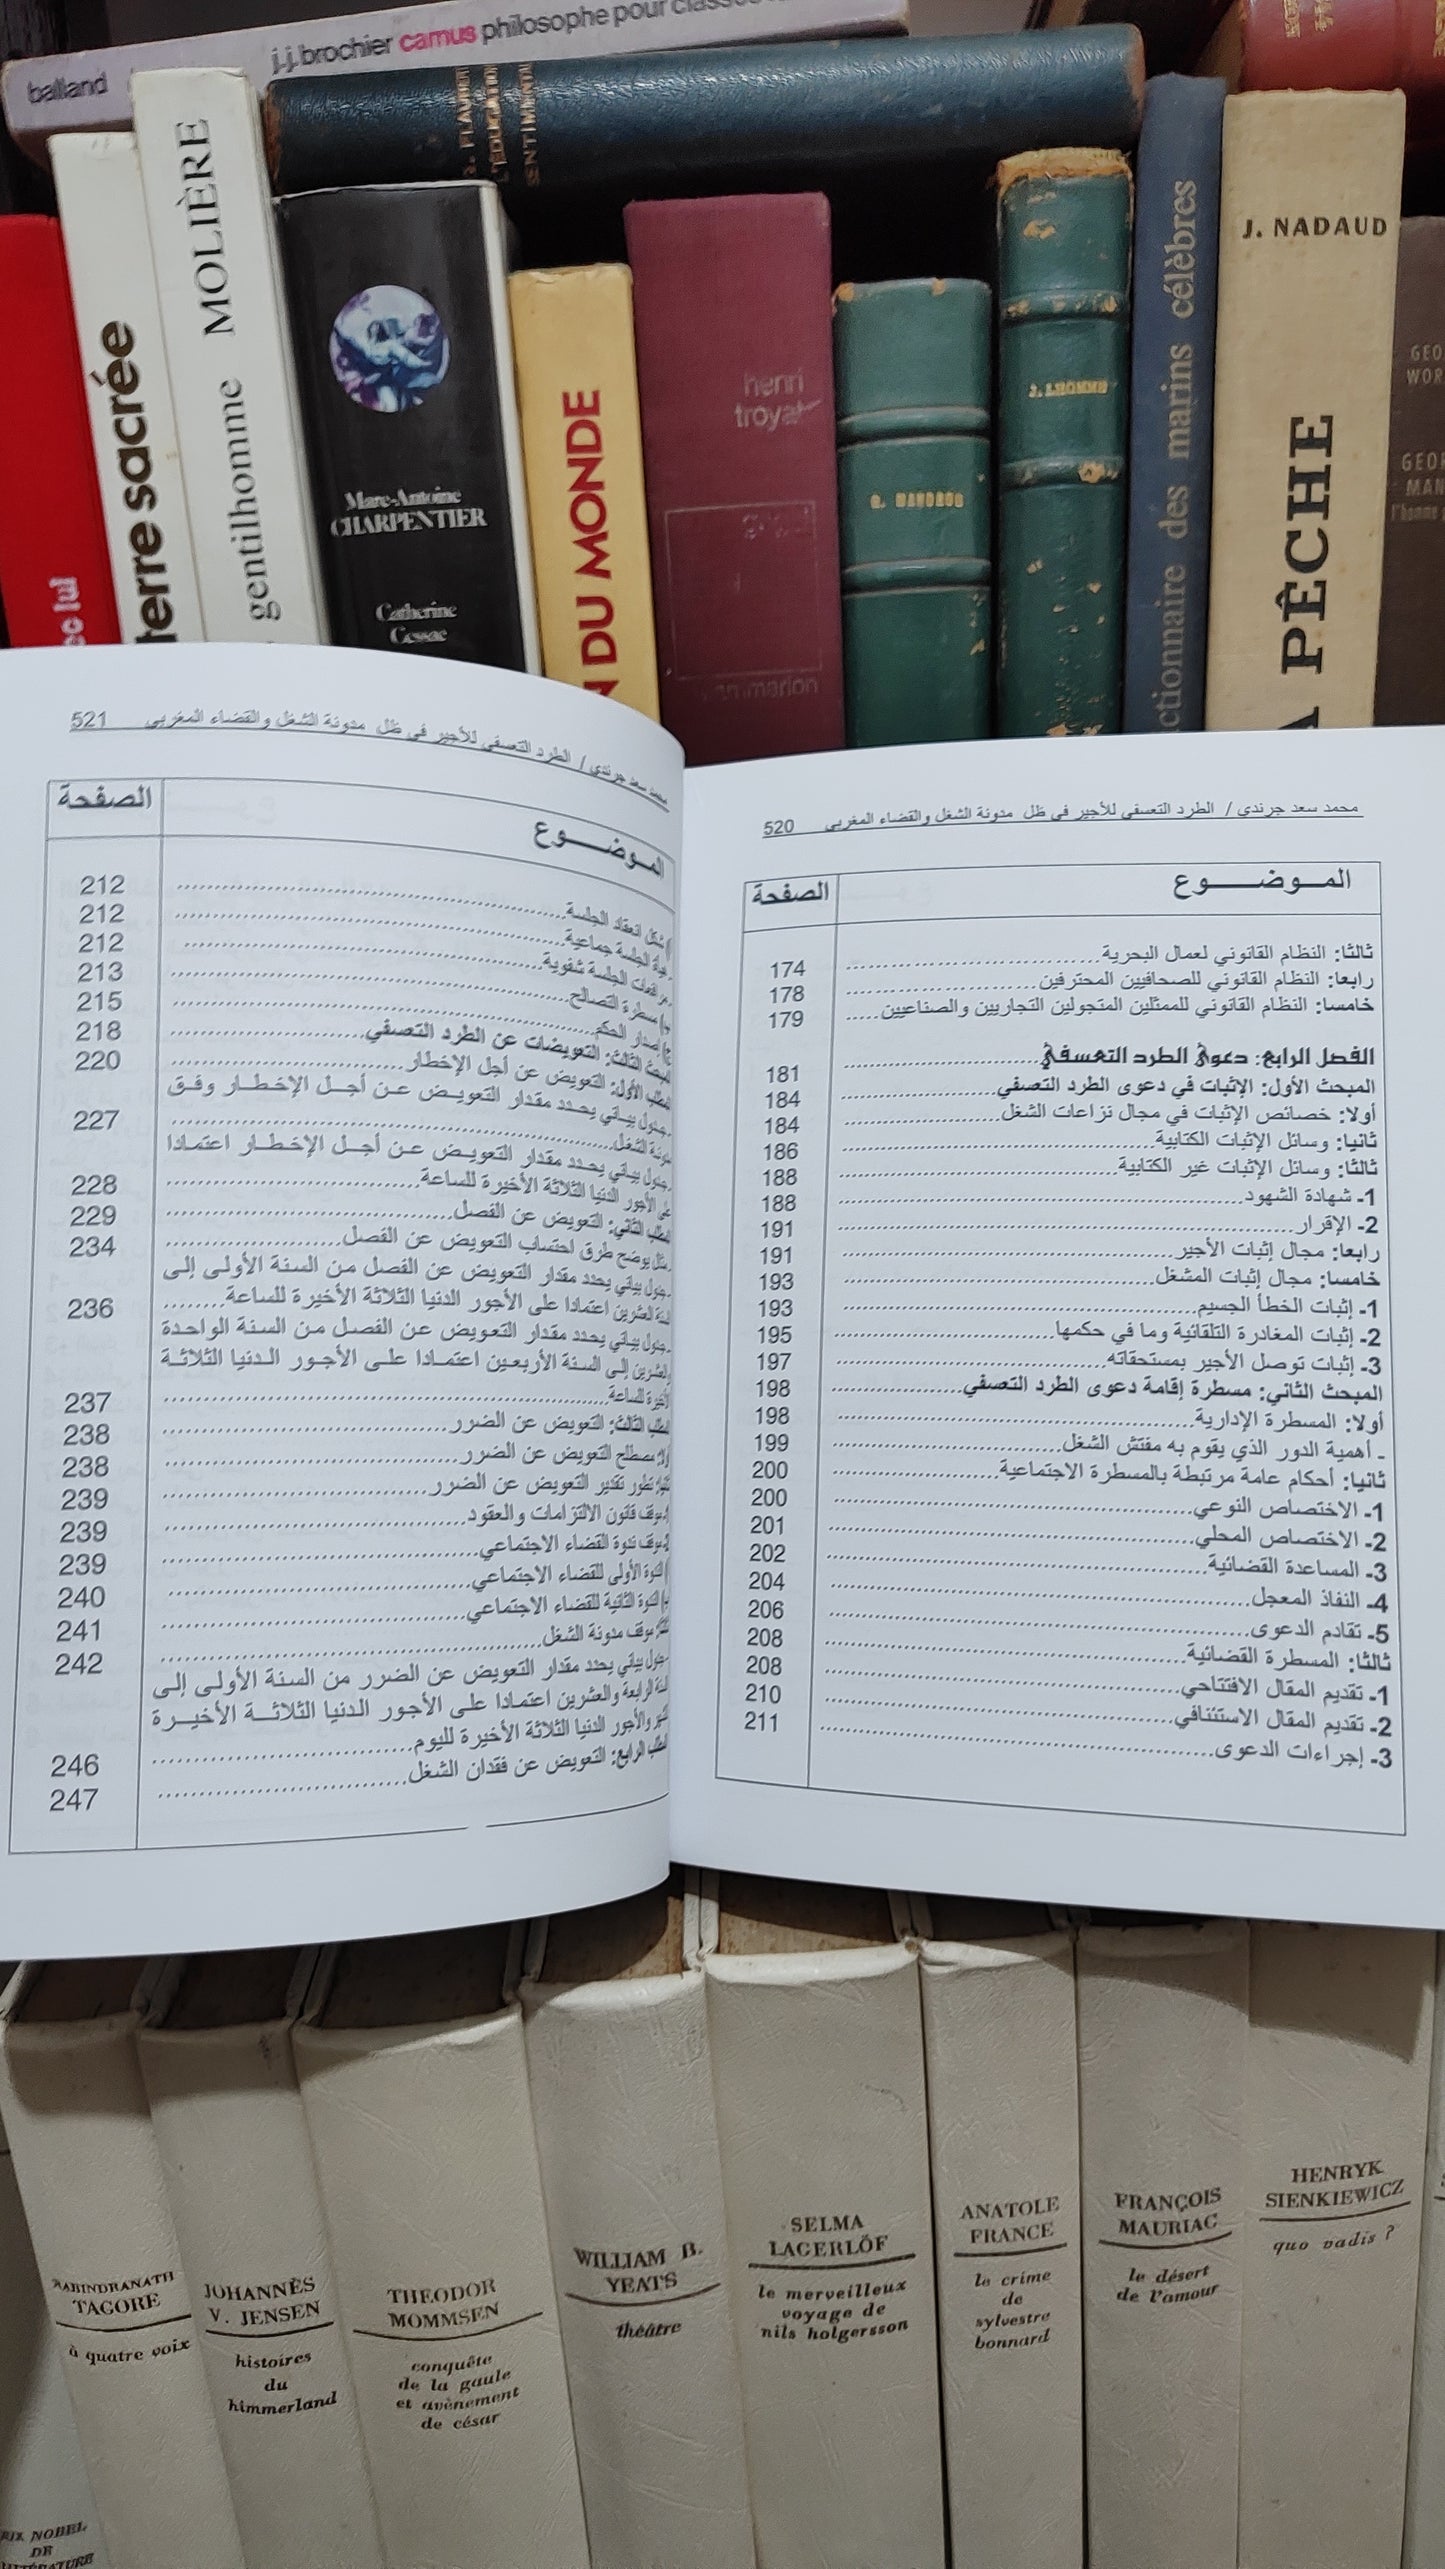 balland
j.-j. brochier camus philosophe pour
G. FLAUBERT
L'ÉDUCATION
SENTIMENTALE
lui
terre sacrée
MOLIÈRE
gentilhomme
Marc-Antoine
CHARPENTIER
Catherine
Cessac
DU MONDE
henri
troyat
J. LHOMME
des marins célèbres
J. NADAUD
PÊCHE
محمد سعد جرندي / الطرد التعسفي للأجير في ظل مدونة الشغل والقضاء المغربي 520
الموضـــوع الصفحة
ثالثا: النظام القانوني لعمال البحرية 174
رابعا: النظام القانوني للصحافيين المحترفين 178
خامسا: النظام القانوني للممثلين المتجولين التجاريين والصناعيين 179
الفصل الرابع: دعوى الطرد التعسفي 181
المبحث الأول: الإثبات في دعوى الطرد التعسفي 184
أولا: خصائص الإثبات في مجال نزاعات الشغل 184
ثانيا: وسائل الإثبات الكتابية 186
ثالثا: وسائل الإثبات غير الكتابية 188
1- شهادة الشهود 188
2- الإقرار 191
رابعا: مجال إثبات الأجير 191
خامسا: مجال إثبات المشغل 193
1- إثبات الخطأ الجسيم 193
2- إثبات المغادرة التلقائية وما في حكمها 195
3- إثبات توصل الأجير بمستحقاته 197
المبحث الثاني: مسطرة إقامة دعوى الطرد التعسفي 198
أولا: المسطرة الإدارية 198
- أهمية الدور الذي يقوم به مفتش الشغل 199
ثانيا: أحكام عامة مرتبطة بالمسطرة الاجتماعية 200
1- الاختصاص النوعي 200
2- الاختصاص المحلي 201
3- المساعدة القضائية 202
4- النفاذ المعجل 204
5- تقادم الدعوى 206
ثالثا: المسطرة القضائية 208
1- تقديم المقال الافتتاحي 208
2- تقديم المقال الاستئنافي 210
3- إجراءات الدعوى 211
محمد سعد جرندي / الطرد التعسفي للأجير في ظل مدونة الشغل والقضاء المغربي 521
الموضـــوع الصفحة
شكل انعقاد الجلسة 212
الجلسة جماعية 212
الجلسة شفوية 212
مسطرة التصالح 213
إصدار الحكم 215
المبحث الثالث: التعويضات عن الطرد التعسفي 218
المطلب الأول: التعويض عن أجل الإخطار 220
جدول بياني يحدد مقدار التعويض عن أجل الإخطار وفق
مدونة الشغل 227
جدول بياني يحدد مقدار التعويض عن أجل الإخطار اعتمادا
على الأجور الدنيا الثلاثة الأخيرة للساعة 228
المطلب الثاني: التعويض عن الفصل 229
مثال يوضح طرق احتساب التعويض عن الفصل 234
جدول بياني يحدد مقدار التعويض عن الفصل من السنة الأولى إلى
السنة العشرين اعتمادا على الأجور الدنيا الثلاثة الأخيرة للساعة 236
جدول بياني يحدد مقدار التعويض عن الفصل من السنة الواحدة
والعشرين إلى السنة الأربعين اعتمادا على الأجور الدنيا الثلاثة
الأخيرة للساعة 237
المطلب الثالث: التعويض عن الضرر 238
أولا: مصطلح التعويض عن الضرر 238
ثانيا: تطور تقدير التعويض عن الضرر 239
موقف قانون الالتزامات والعقود 239
موقف ندوة القضاء الاجتماعي 239
الندوة الأولى للقضاء الاجتماعي 240
الندوة الثانية للقضاء الاجتماعي 241
موقف مدونة الشغل 242
جدول بياني يحدد مقدار التعويض عن الضرر من السنة الأولى إلى
السنة الرابعة والعشرين اعتمادا على الأجور الدنيا الثلاثة الأخيرة
والأجور الدنيا الثلاثة الأخيرة لليوم 246
المطلب الرابع: التعويض عن فقدان الشغل 247
RABINDRANATH
TAGORE
à quatre voix
JOHANNÈS
V. JENSEN
histoires
du
himmerland
THEODOR
MOMMSEN
conquête
de la gaule
et avènement
de césar
WILLIAM B.
YEATS
théâtre
SELMA
LAGERLÖF
le merveilleux
voyage de
nils holgersson
ANATOLE
FRANCE
le crime
de
sylvestre
bonnard
FRANÇOIS
MAURIAC
le désert
de l'amour
HENRYK
SIENKIEWICZ
quo vadis ?
NOBEL
DE